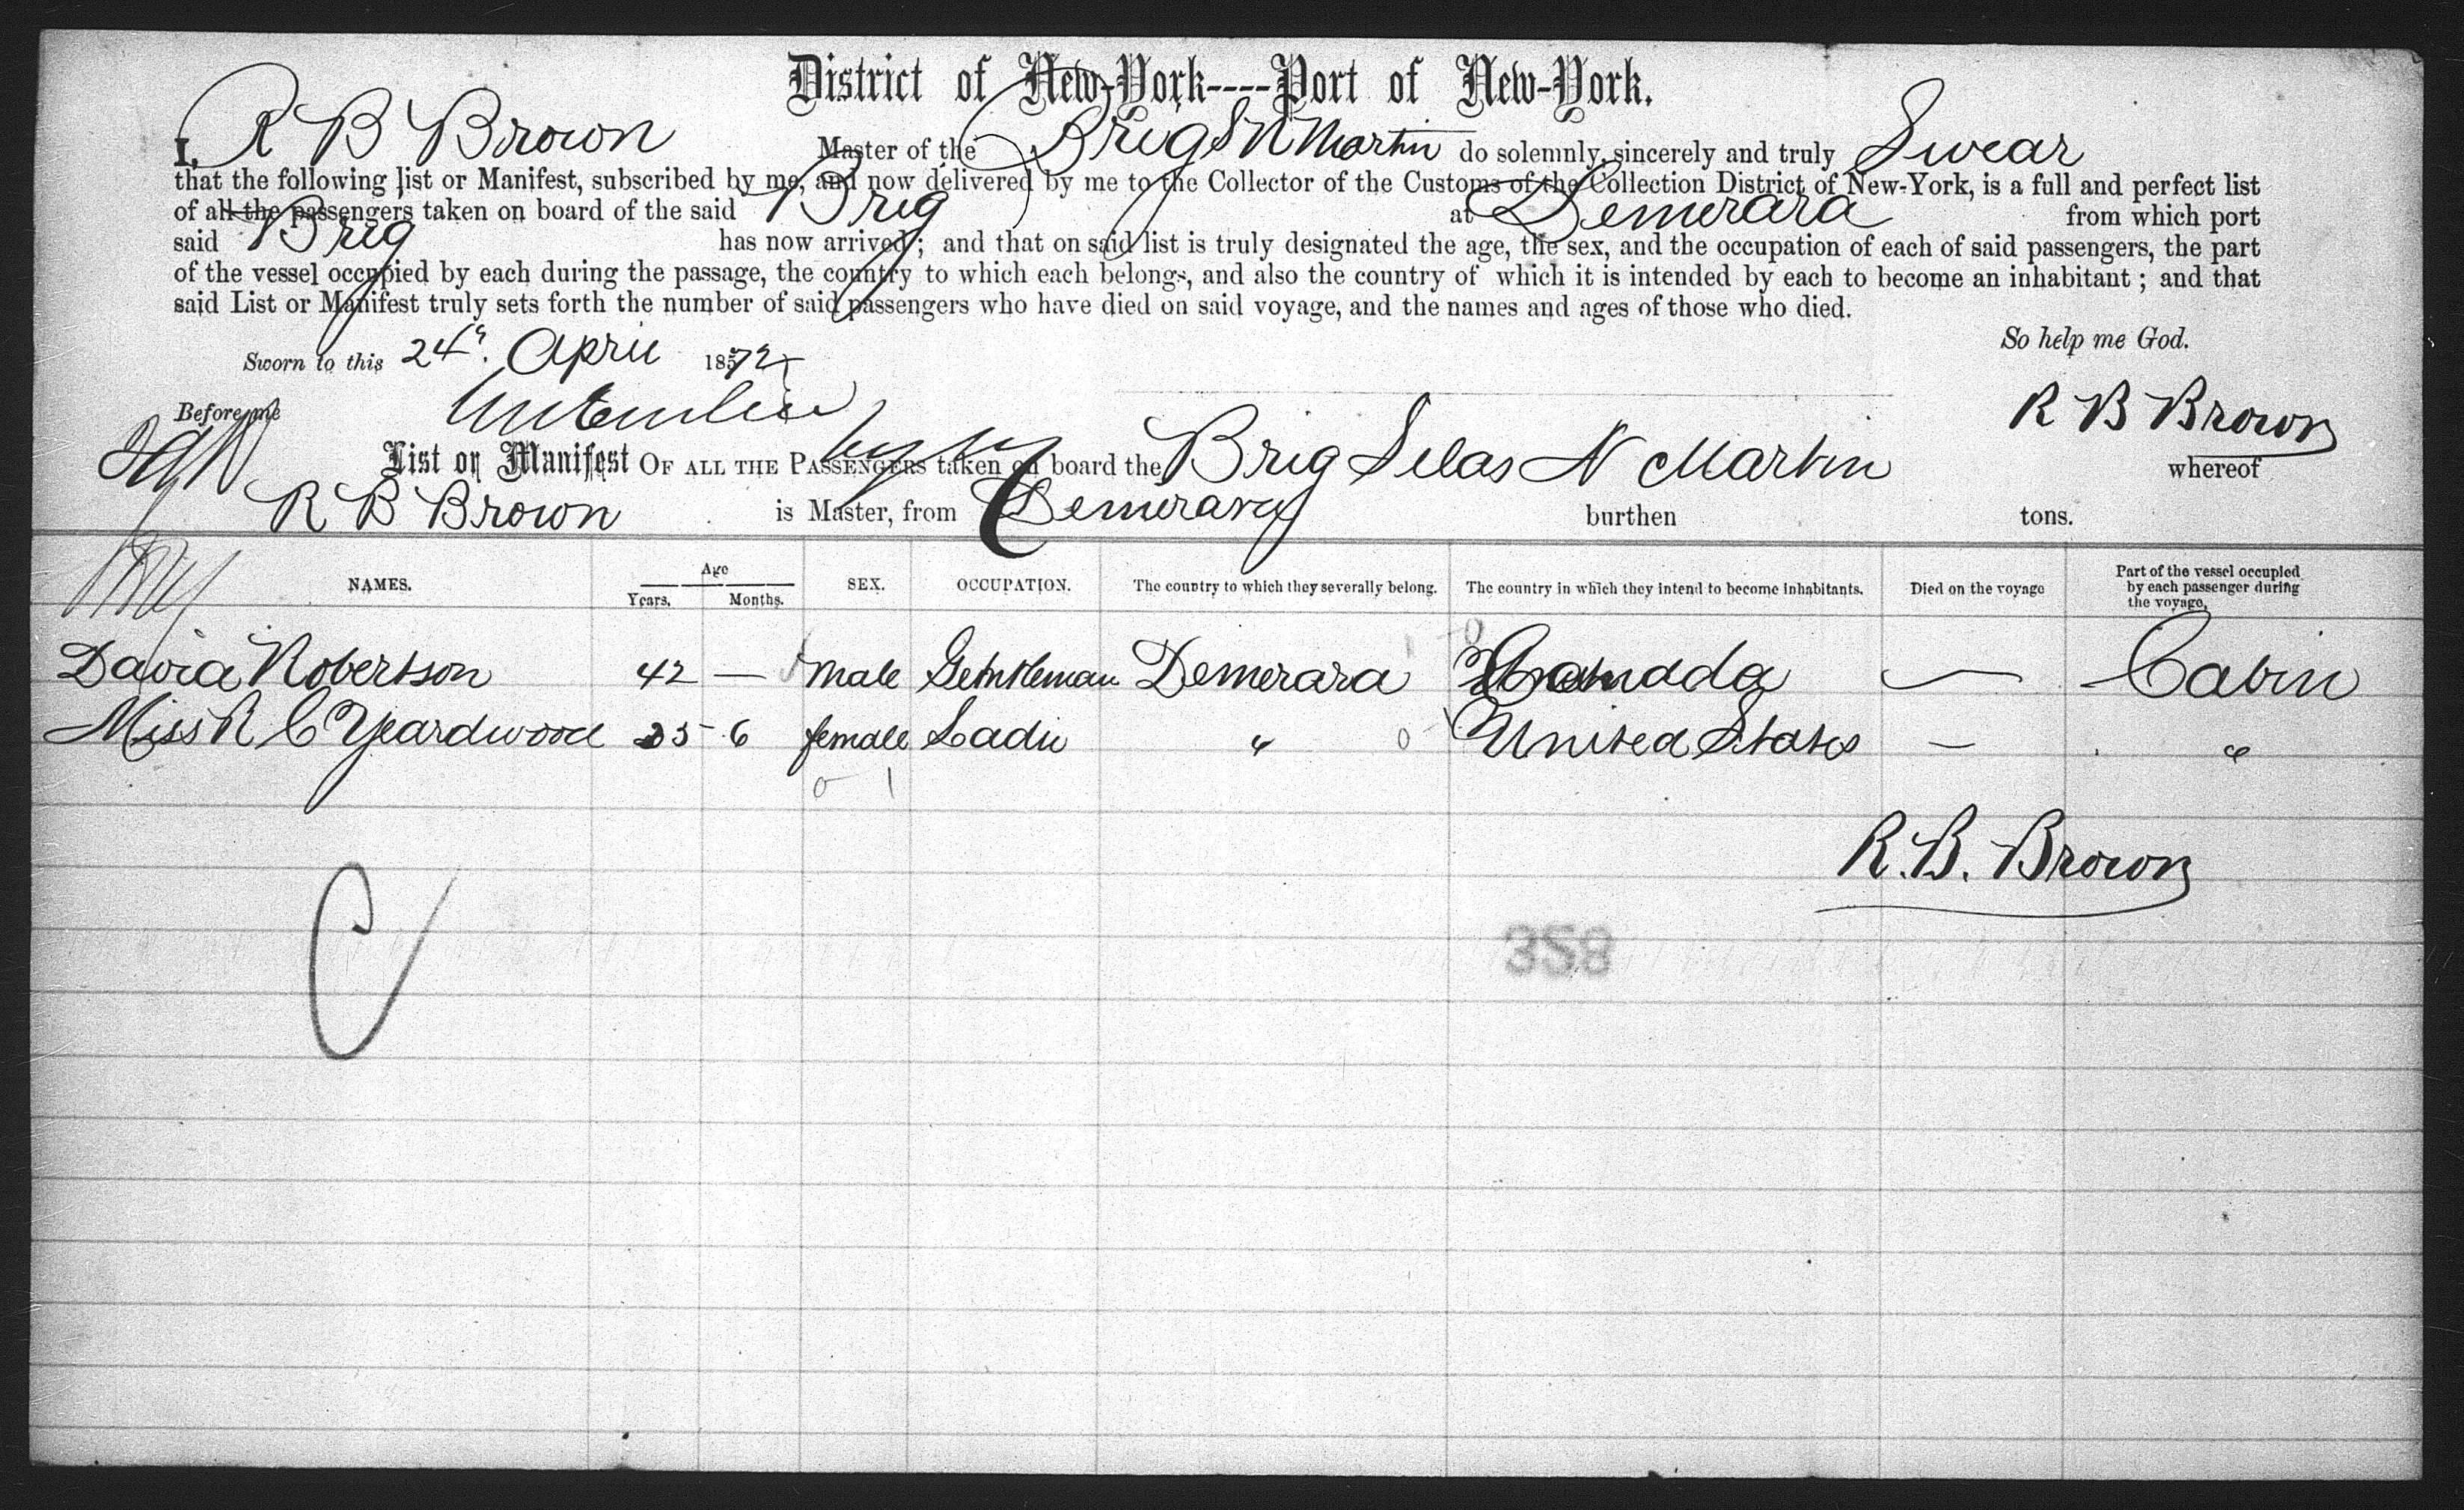 District of New-York----Port of New-York.
I, R B Brown Master of the Brig S N Martin do solemnly, sincerely and truly Swear
that the following list or Manifest, subscribed by me, and now delivered by me to the Collector of the Customs of the Collection District of New-York, is a full and perfect list
of all the passengers taken on board of the said Brig at Demerara from which port
said Brig has now arrived; and that on said list is truly designated the age, the sex, and the occupation of each of said passengers, the part
of the vessel occupied by each during the passage, the country to which each belongs, and also the country of which it is intended by each to become an inhabitant; and that
said List or Manifest truly sets forth the number of said passengers who have died on said voyage, and the names and ages of those who died.
So help me God.
Sworn to this 24th April 1872
Before me
R B Brown
List or Manifest OF ALL THE PASSENGERS taken on board the Brig Silas N Martin whereof
R B Brown is Master, from Demerara burthen tons.
NAMES. Age Years. Months. SEX. OCCUPATION. The country to which they severally belong. The country in which they intend to become inhabitants. Died on the voyage Part of the vessel occupied by each passenger during the voyage.
David Robertson 42 — Male Gentleman Demerara Canadda — Cabin
Miss R C Yeardwood 25 6 female Ladie " United States — "
0 1
R.B. Brown
C
358